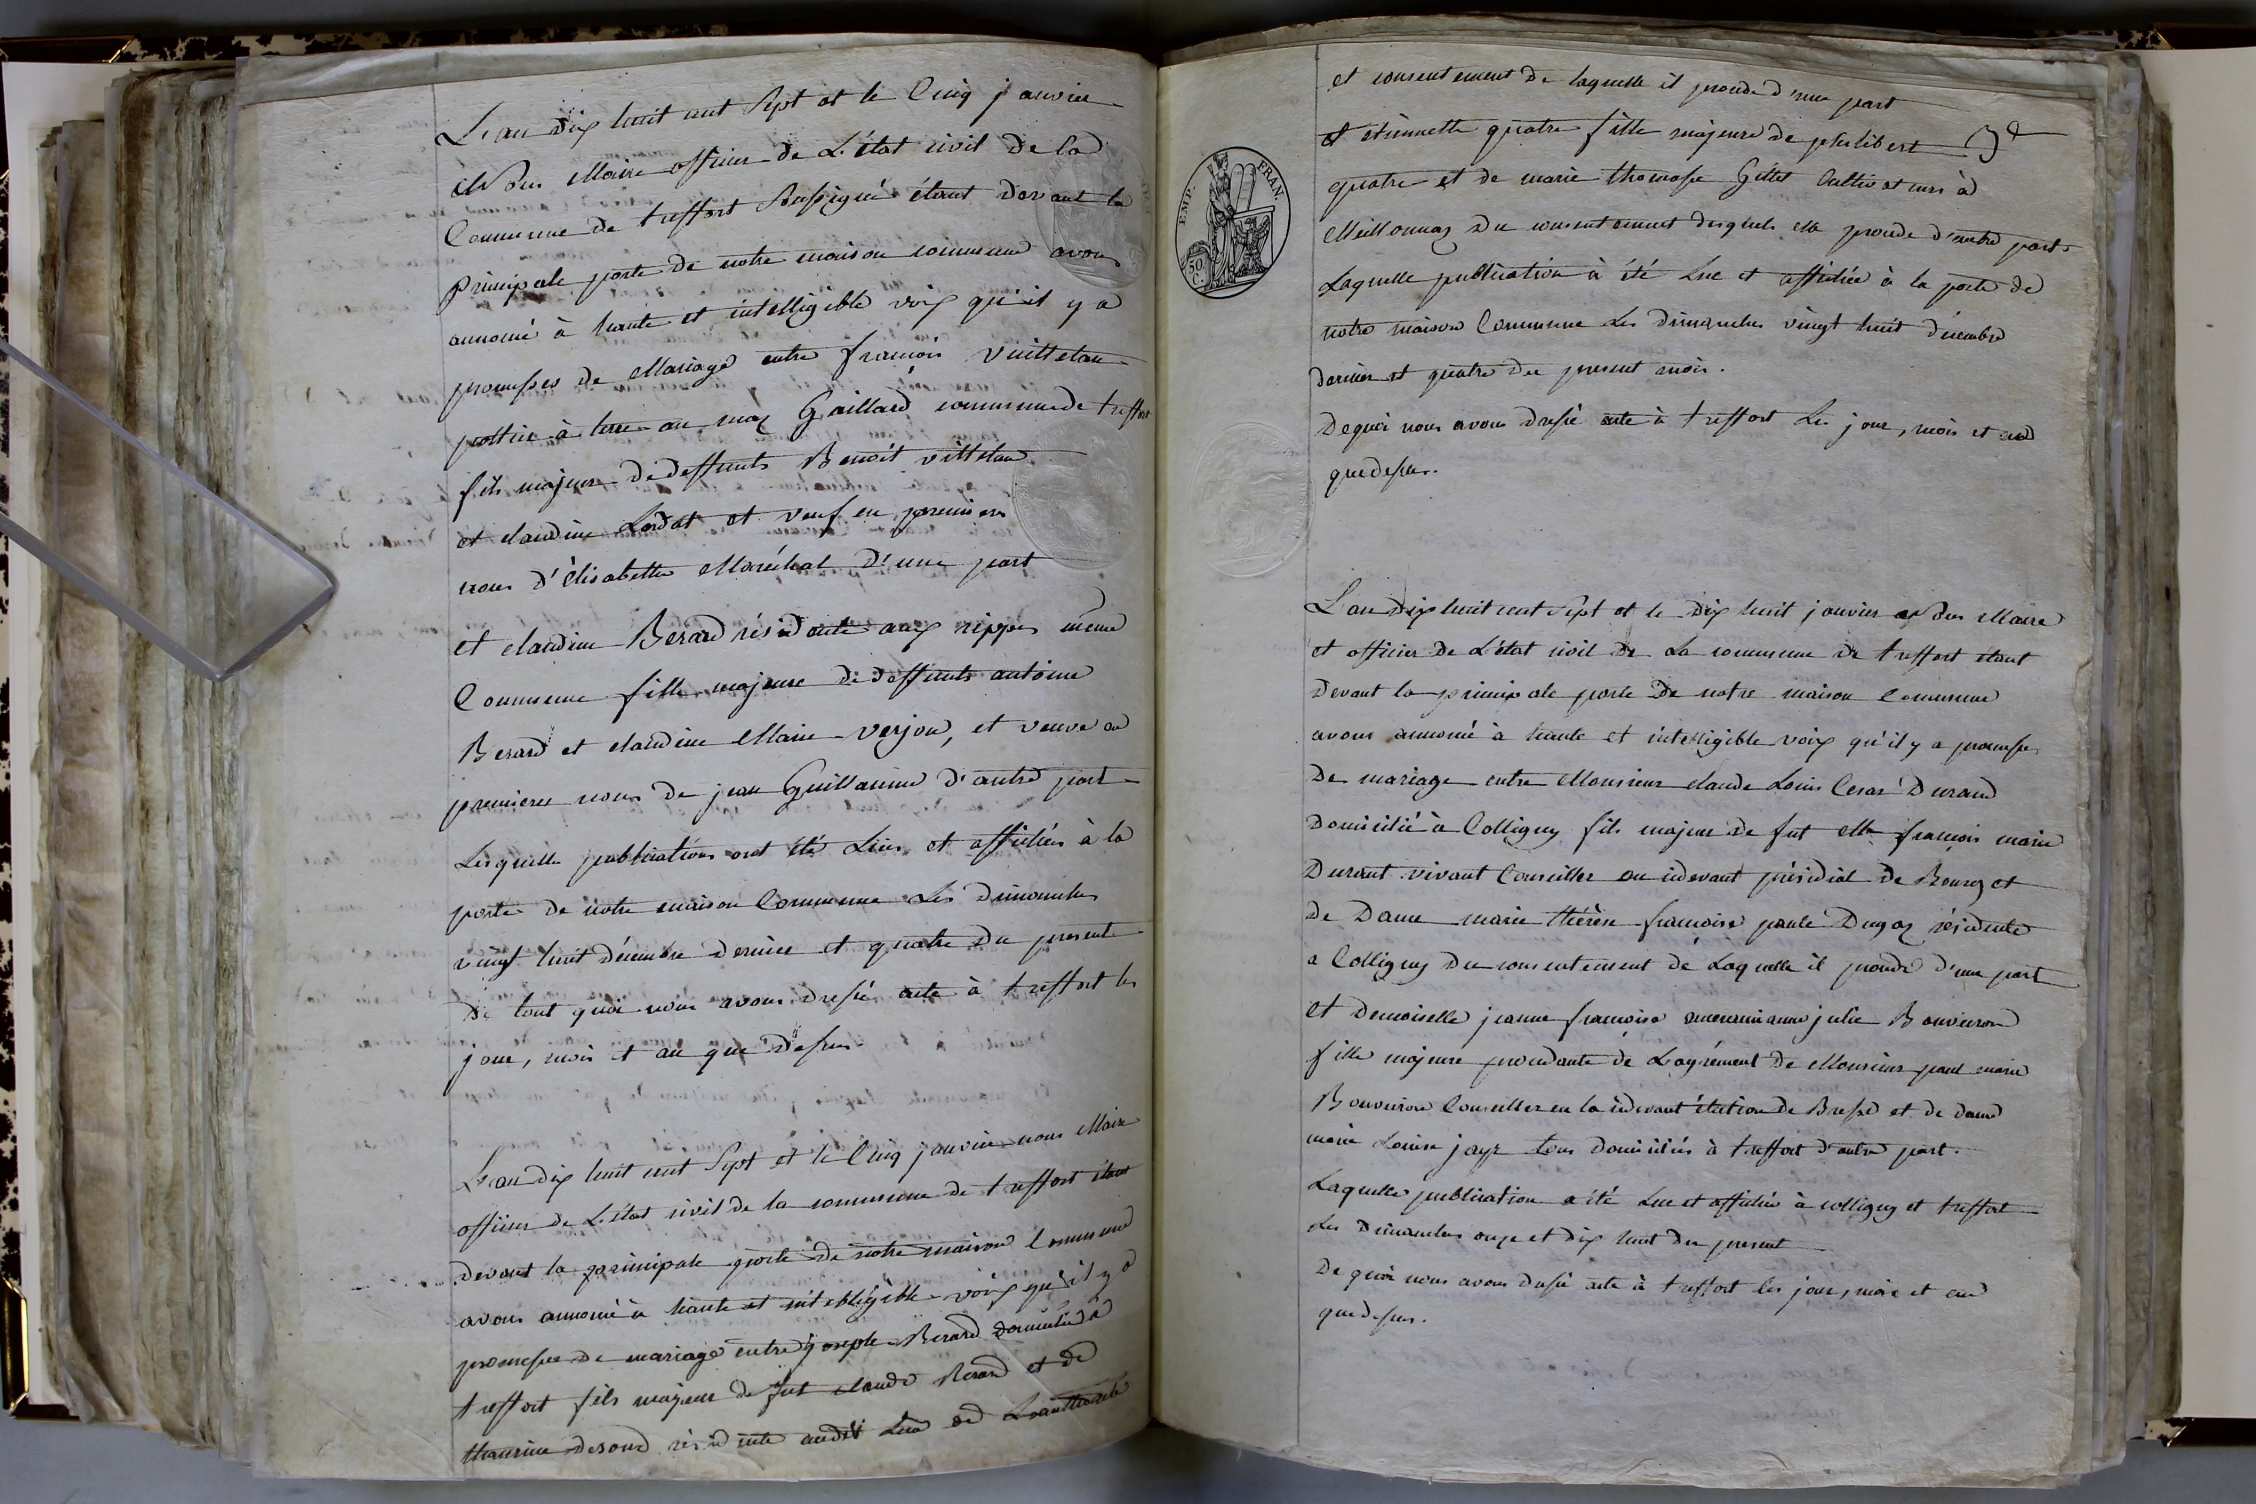 L'an dix huit cent sept et le cinq janvier
Nous Maire officier de L'état civil de la
Commune de treffort Soussigné étant devant la
principale porte de notre maison commune avons
annoncé à haute et intelligible voix qu'il y a
promesses de Mariage entre françois Vuilletan
à terre au max Gaillard commune de treffort
fils majeur de deffunts Benoit villetan
et claudine Lardat et veuf en premiers
noces d'élisabeth Maréchal d'une part
et claudine Berard résidante aux rippes même
Commune fille majeure de deffunts antoine
Berard et claudine Marie Verjon, et veuve en
premieres noces de jean Guillaume d'autre part
Lesquelle publications ont été Lües et affichées à la
porte de notre maison Commune Les dimanches
vingt huit décembre dernier et quatre du present
de tout quoi nous avons dressé acte à treffort les
jour, mois et an que dessus.
L'an dix huit cent sept et le Cinq janvier nous Maire
officier de L'état civil de la commune de treffort étant
devant la principale porte de notre maison Commune
avons annoncé à haute et intelligible voix qu'il y a
promesses de mariage entre joseph Berard domicilié à
treffort fils majeur de fut claude Berard et de
résidente audit Lieu
et consentement de laquelle il procede d'une part
et étiennette quatre fille majeure de philibert
quatre et de marie thomasse Gillet Cultivateurs à
Meillonnaz Du consentement desquels elle procede d'autre part.
Laquelle publication à été Lue et affichée à la porte de
notre maison Commune Les dimanches vingt huit décembre
dernier et quatre du present mois.
De quoi nous avons dressé acte à treffort Les jour, mois et an
que dessus.
EMP. FRAN.
50 C.
L'an dix huit cent sept et le dix huit janvier Nous Maire
et officier de L'état civil de La commune de treffort étant
devant la principale porte de notre maison Commune
avons annoncé à haute et intelligible voix qu'il y a promesses
De mariage entre Monsieur claude Louis Cesar Durand
Domicilié à Colligny fils majeur de fut Mr françois marie
Durant vivant Conseiller au cidevant présidial de Bourg et
De Dame marie thérèse françoise paule Dugaz résidente
a Colligny Du consentement de Laquelle il procede d'une part
et Demoiselle jeanne françoise julie Bouveiron
fille majeure procedante de L'agrément de Monsieur paul marie
Bouveiron Conseiller en la cidevant élection de Bresse et de dame
marie Louise jayr tous domiciliés à treffort d'autre part.
Laquelle publication a été Lue et affichée à colligny et treffort
Les Dimanches onze et dix huit du present
De quoi nous avons dressé acte à treffort les jour, mois et an
que dessus.